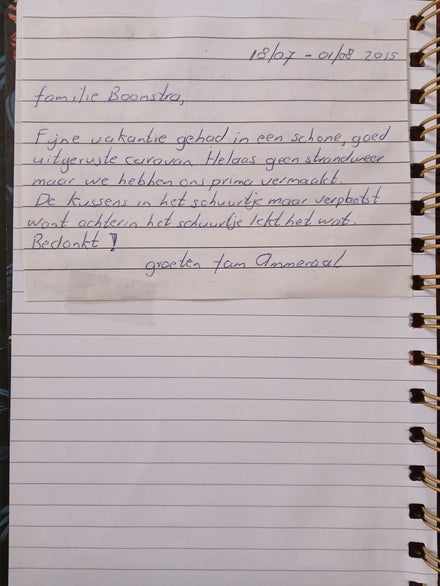 18/07 - 01/08 2015
familie Boonstra,
Fijne vakantie gehad in een schone, goed
uitgeruste caravan. Helaas geen strandweer
maar we hebben ons prima vermaakt.
De kussens in het schuurtje maar verplaatst
want achterin het schuurtje lekt het wat.
Bedankt !
groeten fam Ammeraal